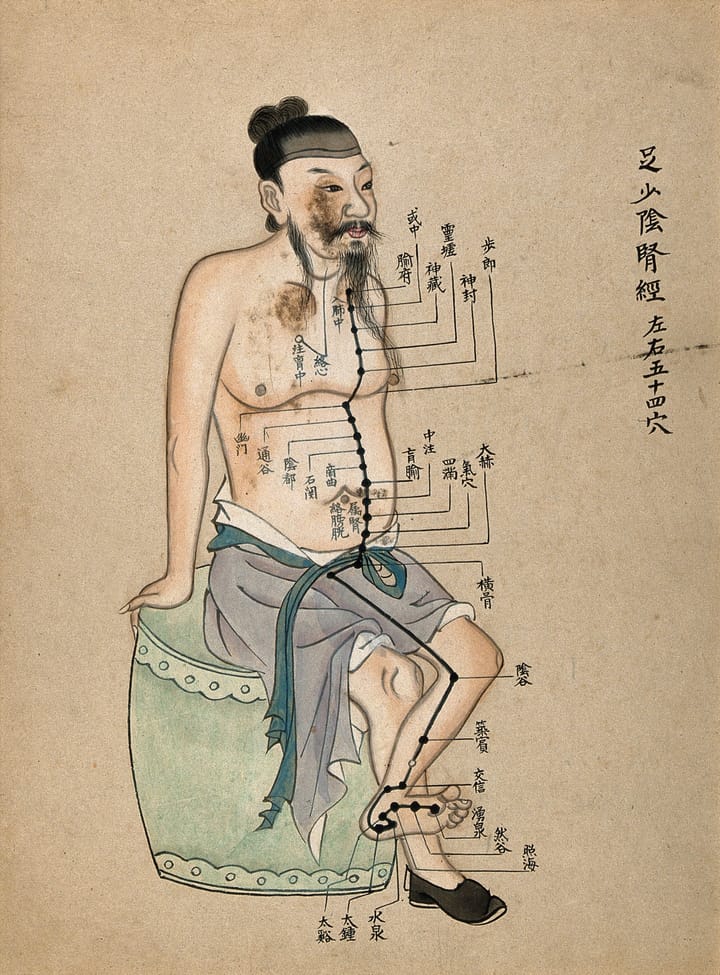 足少陰腎經 左右五十四穴
步郎
神封
靈墟
神藏
或中
腧府
入肺中
絡心
注胷中
幽門
通谷
陰都
石関
商曲
大赫
氣穴
四滿
中注
肓腧
屬腎
絡膀胱
橫骨
陰谷
築賓
交信
湧泉
然谷
照海
水泉
太鍾
太谿